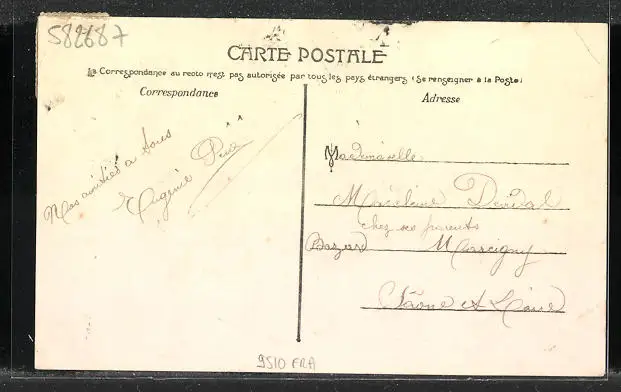 582687
CARTE POSTALE
La Correspondance au recto n'est pas autorisée par tous les pays étrangers (Se renseigner à la Poste)
Correspondance
Adresse
Mes amitiés a tous
Eugénie
Mademoiselle
Marcelline
chez ses parents
Bazard Marcigny
Saône et Loire
9510 FRA